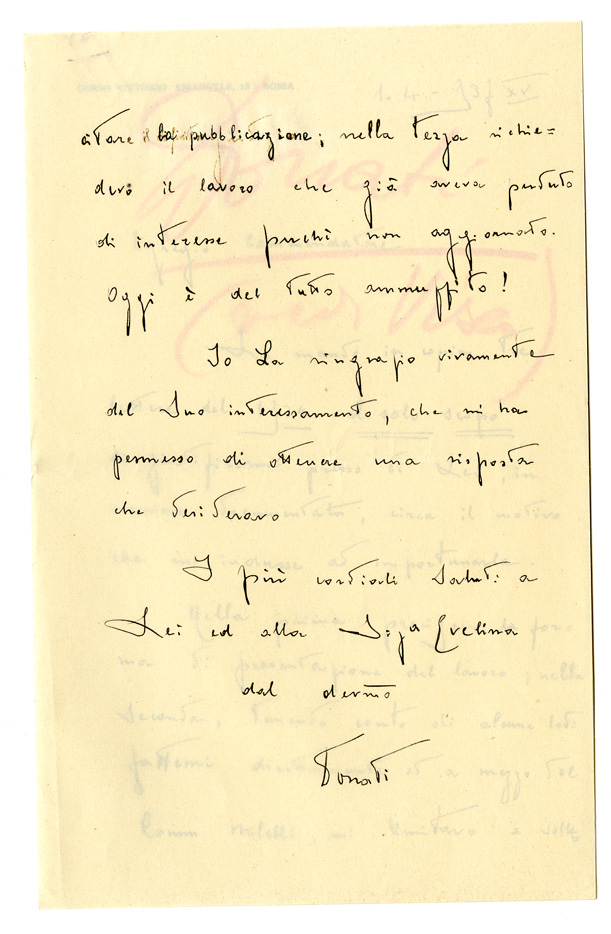 citare la pubblicazione; nella terza richie=
devo il lavoro che già aveva perduto
di interesse perchè non aggiornato.
Oggi è del tutto ammuffito!
Io La ringrazio vivamente
del Suo interessamento, che mi ha
permesso di ottenere una risposta
che desideravo
I più cordiali saluti a
Lei ed alla Sig.ra Evelina
dal devmo
Donati